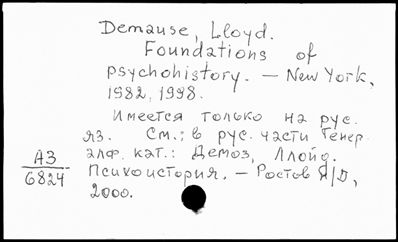 Demause, Lloyd.
Foundations of
psychohistory. – New York,
1982, 1998.
Имеется только на рус.
яз. См.: в рус. части Генер.
алф. кат.: Демоз, Ллойд.
АЗ
6824
Психоистория. – Ростов н/Д,
2000.